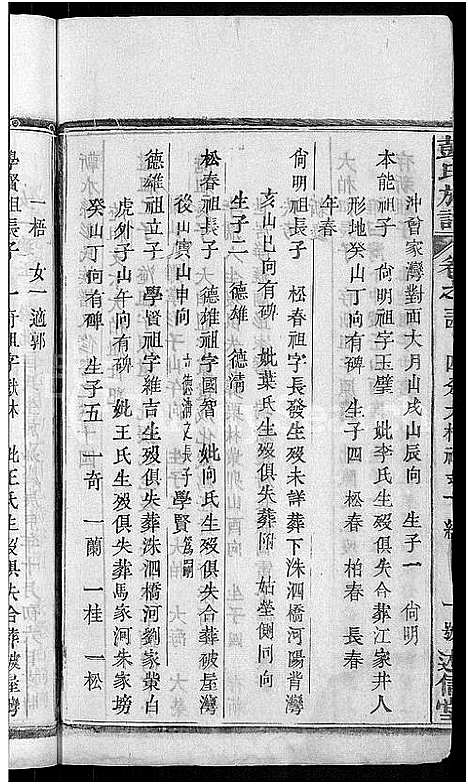 彭氏族譜 卷之
述信堂
沖曾家灣對面大月山戌山辰向 生子一 尙明
本能祖子 尙明祖字玉璧 妣李氏生歿俱失葬江家井人
形地癸山丁向有碑 生子四 松春 柏春 長春
年春
尙明祖長子 松春祖字長發生歿未詳葬下洙泗橋河陽背灣
亥山巳向有碑 妣葉氏生歿俱失葬附 姑塋側同向
生子二 德雄 德清
松春祖長子 德雄祖字國智 妣向氏生歿俱失合葬破屋灣
後山寅山申向 立德清文長子學賢爲嗣
德雄祖立子 學賢祖字維吉生歿俱失葬洙泗橋河劉家棠白
虎外子山午向有碑 妣王氏生歿俱失葬馬家河朱家塝
癸山丁向有碑 生子五 一奇 一蘭 一桂 一松
一梧 女一 適郭
學賢祖長子 一奇祖字獻林 妣王氏生歿俱失合葬破屋灣